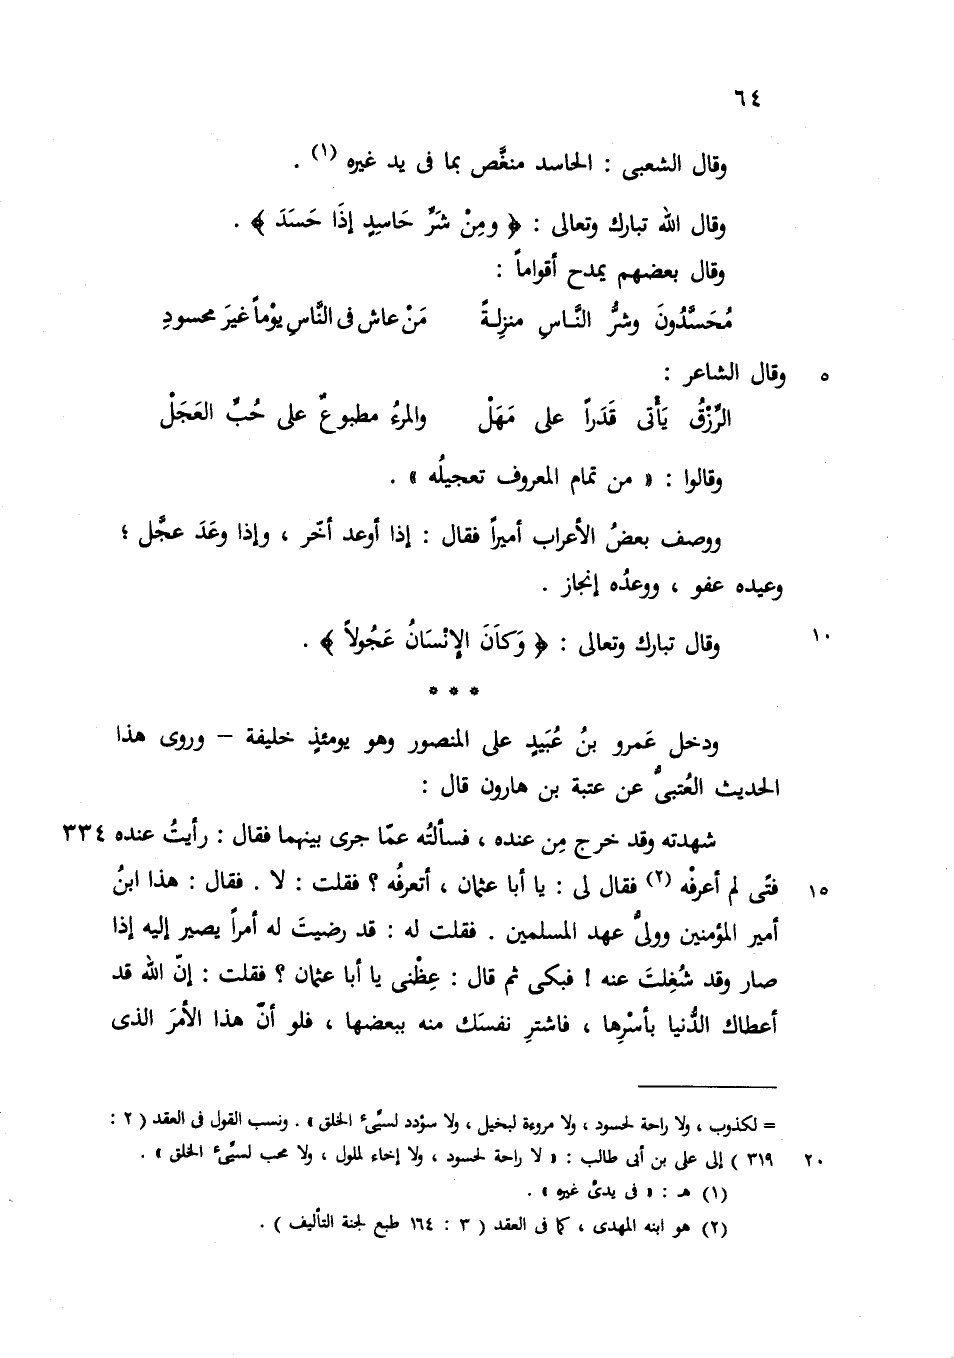 ٦٤
وقال الشعبى : الحاسد منغَّص بما فى يد غيره (١) .
وقال الله تبارك وتعالى : ﴿ ومِنْ شَرِّ حَاسِدٍ إذَا حَسَدَ ﴾ .
وقال بعضهم يمدح أقواماً :
مُحَسَّدُونَ وشرُّ النَّـاسِ منزِلـةً مَنْ عاش فى النَّاسِ يوْماً غيرَ محسودِ
٥ وقال الشاعر :
الرِّزْقُ يَأْتى قَدَراً على مَهَلْ والمرءُ مطبوعٌ على حُبِّ العَجَلْ
وقالوا : « من تمام المعروف تعجيلُه » .
ووصف بعضُ الأعراب أميراً فقال : إذا أوعد أخّر ، وإذا وعَدَ عجَّل ؛
وعيده عفو ، ووعدُه إنجاز .
١٠ وقال تبارك وتعالى : ﴿ وَكاَنَ الإنْسَانُ عَجُولاً ﴾ .
* * *
ودخل عَمرو بنُ عُبَيدٍ على المنصور وهو يومئذٍ خليفة – وروى هذا
الحديث العُتبىُّ عن عتبة بن هارون قال :
شهدته وقد خرج مِن عنده ، فسألتُه عمّا جرى بينهما فقال : رأيتُ عنده ٣٣٤
١٥ فتًى لم أعرفْه (٢) فقال لى : يا أبا عثمان ، أتعرفُه ؟ فقلت : لا . فقال : هذا ابنُ
أمير المؤمنين وولىُّ عهد المسلمين . فقلت له : قد رضيتَ له أمراً يصير إليه إذا
صار وقد شُغِلتَ عنه ! فبكى ثم قال : عِظْنى يا أبا عثمان ؟ فقلت : إنّ الله قد
أعطاك الدُّنيا بأسْرِها ، فاشترِ نفسَك منه ببعضها ، فلو أنّ هذا الأمرَ الذى
= لكذوب ، ولا راحة لحسود ، ولا مروءة لبخيل ، ولا سؤدد لسيِّىء الخلق » . ونسب القول فى العقد ( ٢ :
٢٠ ٣١٩ ) إلى على بن أبى طالب : « لا راحة لحسود ، ولا إخاء لملول ، ولا محب لسيِّىء الخلق » .
(١) هـ : « فى يدىْ غيره » .
(٢) هو ابنه المهدى ، كما فى العقد ( ٣ : ١٦٤ طبع لجنة التأليف ) .